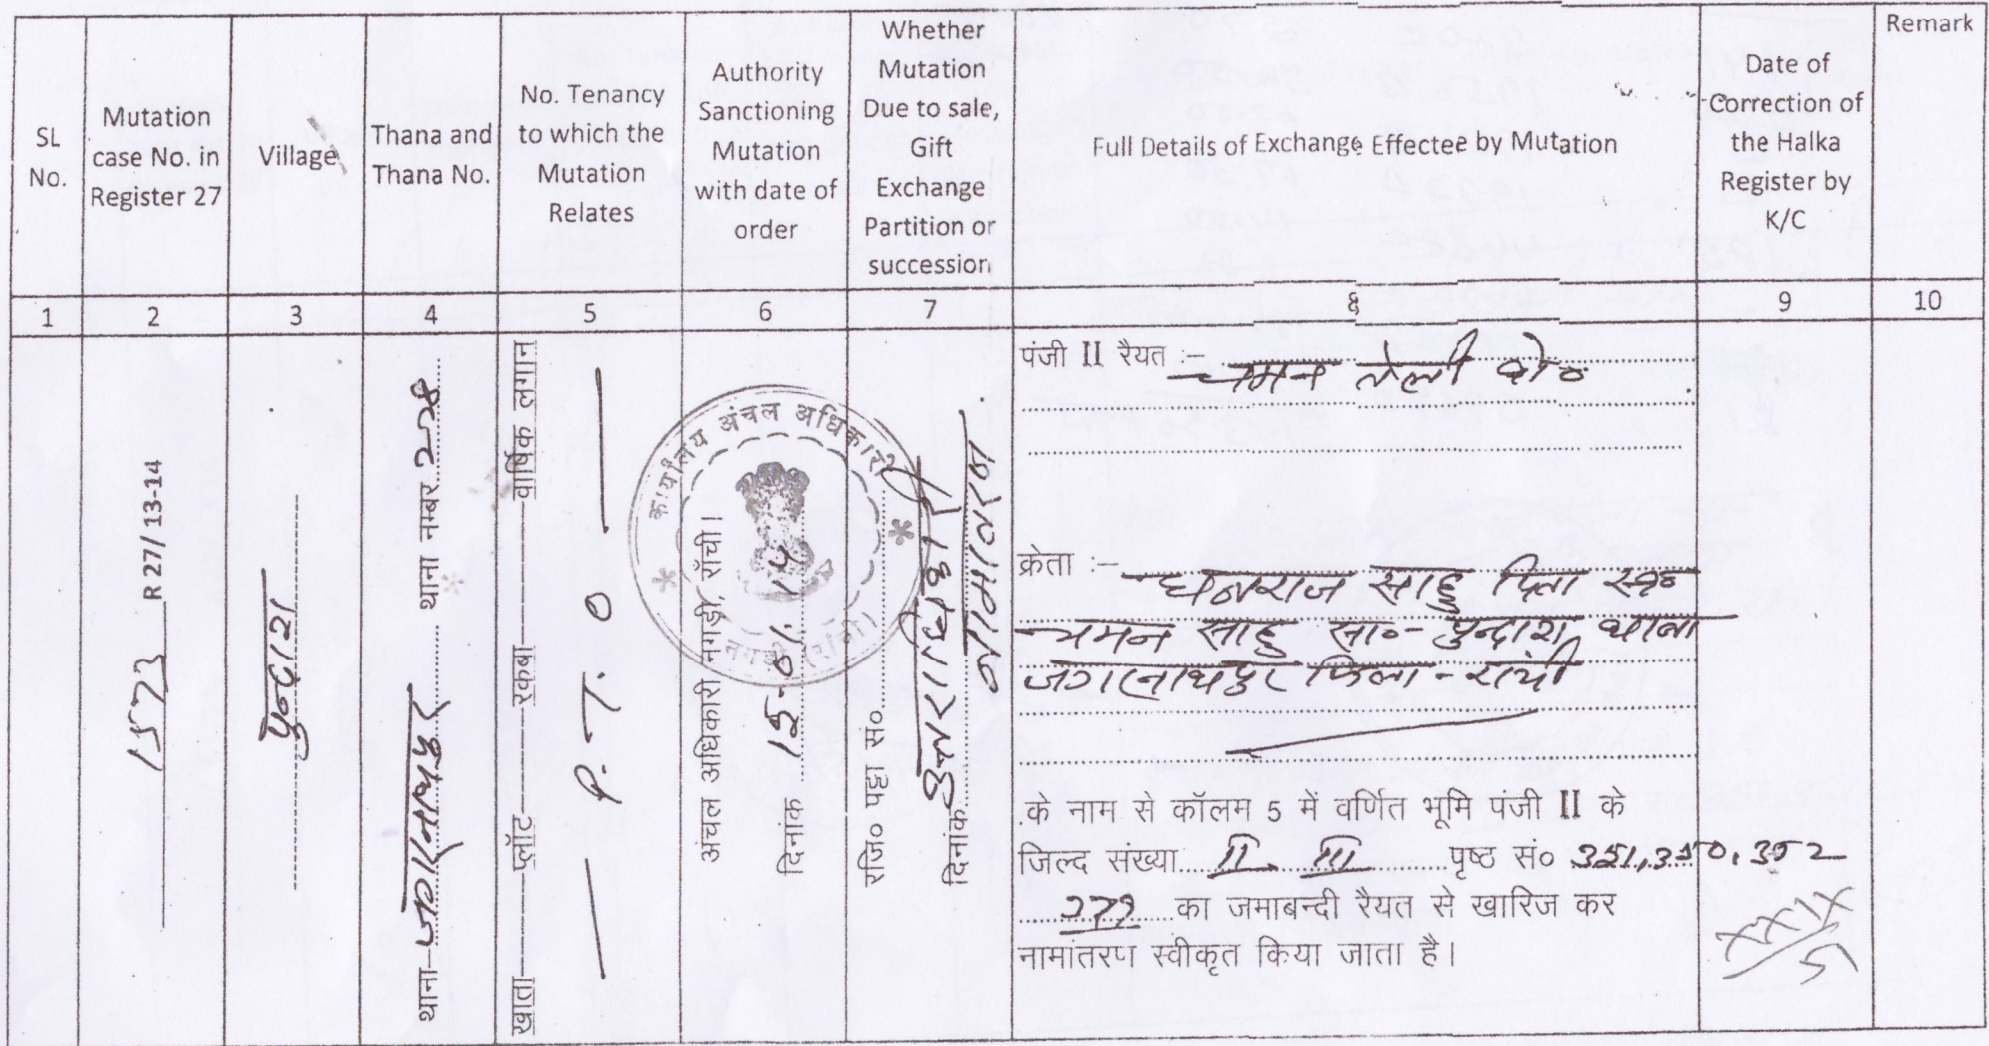 SL No.
Mutation case No. in Register 27
Village
Thana and Thana No.
No. Tenancy to which the Mutation Relates
Authority Sanctioning Mutation with date of order
Whether Mutation Due to sale, Gift Exchange Partition or succession
Full Details of Exchange Effectee by Mutation
Date of Correction of the Halka Register by K/C
Remark
1 2 3 4 5 6 7 8 9 10
1573 R 27/13-14
पुन्दाग
थाना जगरनाथपुर थाना नम्बर 228
खाता प्लॉट रकबा वार्षिक लगान
P.T.O
अंचल अधिकारी नागड़ी, राँची।
दिनांक 15-01.14
कार्यालय अंचल अधिकारी
नगड़ी (राँची)
रजि० पट्टा सं०
दिनांक उत्तराधिकारी
नामान्तरण
पंजी II रैयत :- चमन तेली वो०
क्रेता :- धनराज साहु पिता स्व०
चमन साहु सा०- पुन्दाग थाना
जगरनाथपुर जिला - रांची
के नाम से कॉलम 5 में वर्णित भूमि पंजी II के
जिल्द संख्या II, III पृष्ठ सं० 351,350,352
279 का जमाबन्दी रैयत से खारिज कर
नामांतरण स्वीकृत किया जाता है।
XXIX
5